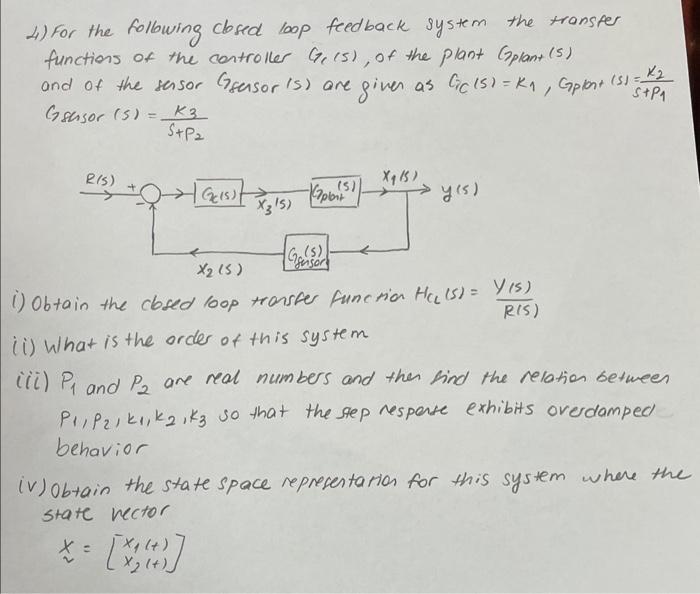 4) For the following closed loop feedback system the transfer
functions of the controller Gc(s), of the plant Gplant(s)
and of the sensor Gsensor(s) are given as Gc(s) = K1, Gplant(s) = K2/(S+P1)
Gsensor(s) = K3/(S+P2)
R(s) + - Gc(s) X3(s) Gplant(s) X1(s) y(s)
X2(s) Gsensor(s)
i) Obtain the closed loop transfer function HCL(s) = Y(s)/R(s)
ii) What is the order of this system
iii) P1 and P2 are real numbers and then find the relation between
P1, P2, k1, k2, k3 so that the step response exhibits overdamped
behavior
iv) Obtain the state space representation for this system where the
state vector
x = [x1(t)
x2(t)]